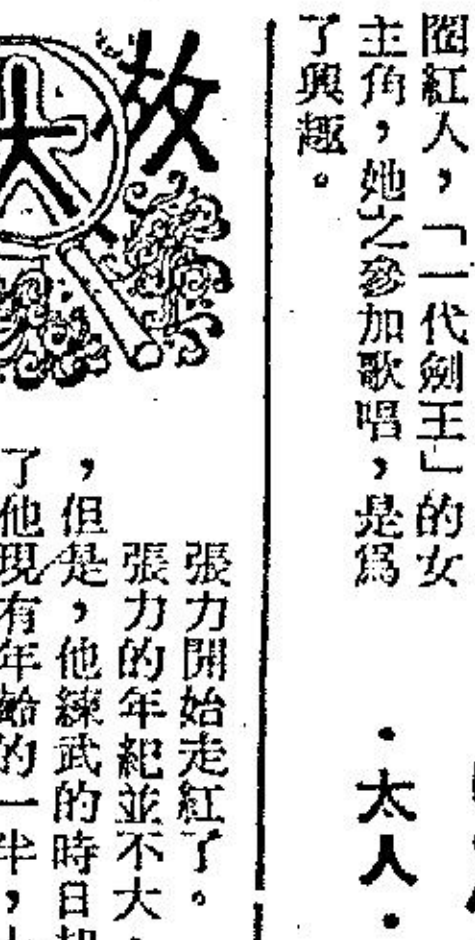 圈紅人，「一代劍王」的女
主角，她之參加歌唱，是爲
了興趣。
・太人・
故
大
張力開始走紅了。
張力的年紀並不大，
，但是，他練武的時日却
了他現有年齡的一半，